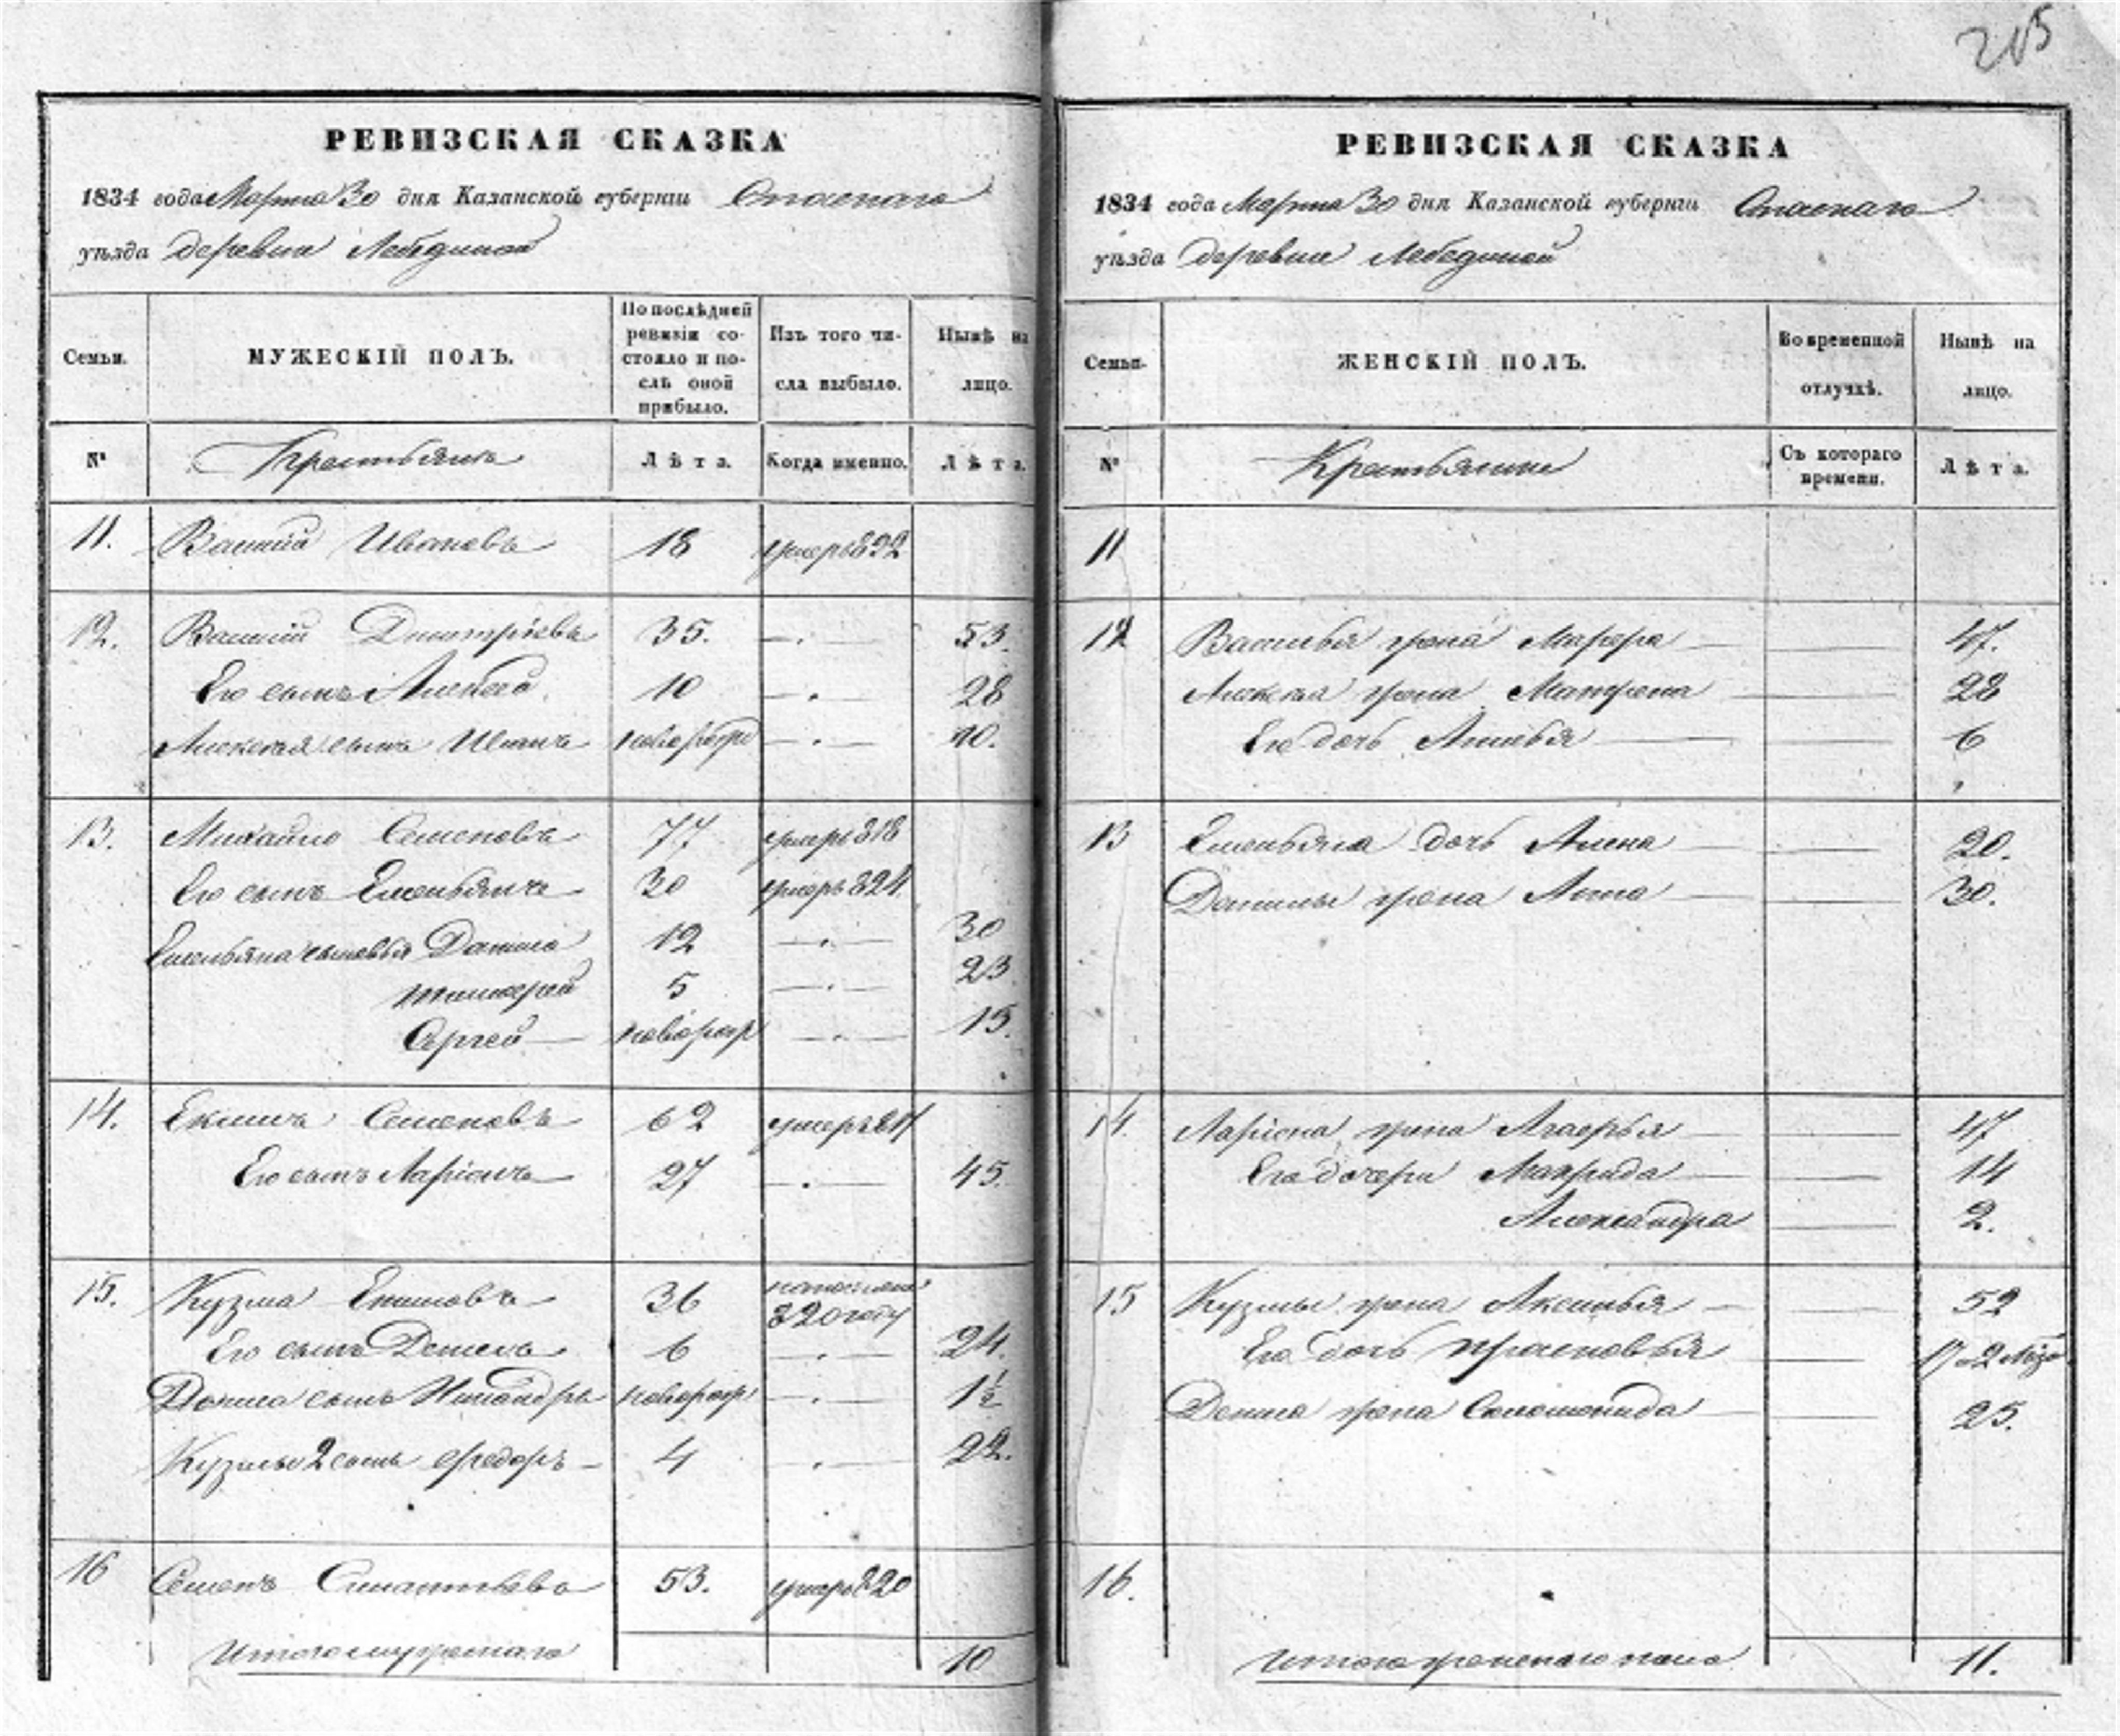 215
РЕВИЗСКАЯ СКАЗКА
1834 года Марта 30 дня Казанской губерніи Спаскаго
уѣзда деревни Лебединой
Семьи.
МУЖЕСКІЙ ПОЛЪ.
По послѣдней ревизіи состояло и послѣ оной прибыло.
Изъ того числа выбыло.
Нынѣ на лицо.
№
Крестьянъ
Лѣта.
Когда именно.
Лѣта.
11. Василій Ивановъ 18 умеръ 832
12. Василій Дмитріевъ 35. 53.
Его сынъ Алексей 10 28
Алексея сынъ новорожд 10.
13. Михайло Семеновъ 77 умеръ 818
Его сынъ Емельянъ 30 умеръ 824.
Емельяна сыновья Данила 12 30
Тимофей 5 23
Сергей новорож 15.
14. Екимъ Семеновъ 62 умеръ
Его сынъ Ларіонъ 27 45.
15. Кузма Екимовъ 36 820 году
Его сынъ Дениса 6 24.
Дениса сынъ Никандръ новорож 1½
Кузмы 2 сынъ Федоръ 4 22.
16 Семенъ 53. умеръ 820
Итого мужескаго 10
РЕВИЗСКАЯ СКАЗКА
1834 года Марта 30 дня Казанской губерніи Спаскаго
уѣзда деревни Лебединой
Семьи.
ЖЕНСКІЙ ПОЛЪ.
Во временной отлучкѣ.
Нынѣ на лицо.
№
Крестьянки
Съ котораго времени.
Лѣта.
11
12 Василья жена Марфа 47.
Алексея жена Матрена 28
Его дочь 6
13 Емельяна дочь Алена 20.
Данилы жена Анна 30.
14. Ларіона жена Агафья 47
Его дочери Макрида 14
Александра 2.
15 Кузмы жена Аксинья 52
Его дочь Прасковья 17
Дениса жена Соломонида 25.
16.
Итого женскаго пола 11.